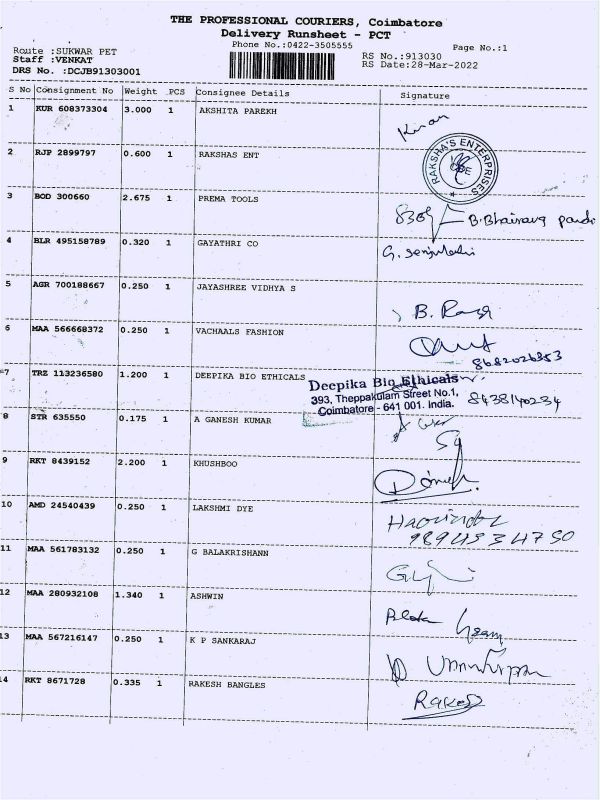 THE PROFESSIONAL COURIERS, Coimbatore
Delivery Runsheet - PCT
Phone No.:0422-3505555 Page No.:1
Route :SUKWAR PET RS No.:913030
Staff :VENKAT RS Date:28-Mar-2022
DRS No. :DCJB91303001
S No Consignment No Weight PCS Consignee Details Signature
1 KUR 608373304 3.000 1 AKSHITA PAREKH
Kiran
2 RJP 2899797 0.600 1 RAKSHAS ENT
RAKSHA'S ENTERPRISES
3 BOD 300660 2.675 1 PREMA TOOLS
B.Bhairava
4 BLR 495158789 0.320 1 GAYATHRI CO
G.
5 AGR 700188667 0.250 1 JAYASHREE VIDHYA S
B.
6 MAA 566668372 0.250 1 VACHAALS FASHION
8682026353
7 TRZ 113236580 1.200 1 DEEPIKA BIO ETHICALS
Deepika Bio Ethicals
393, Theppakulam Street No.1,
Coimbatore - 641 001. India.
8438140234
8 STR 635550 0.175 1 A GANESH KUMAR
9 RKT 8439152 2.200 1 KHUSHBOO
Dinesh
10 AMD 24540439 0.250 1 LAKSHMI DYE
9894534750
11 MAA 561783132 0.250 1 G BALAKRISHANN
12 MAA 280932108 1.340 1 ASHWIN
13 MAA 567216147 0.250 1 K P SANKARAJ
14 RKT 8671728 0.335 1 RAKESH BANGLES
Rakesh